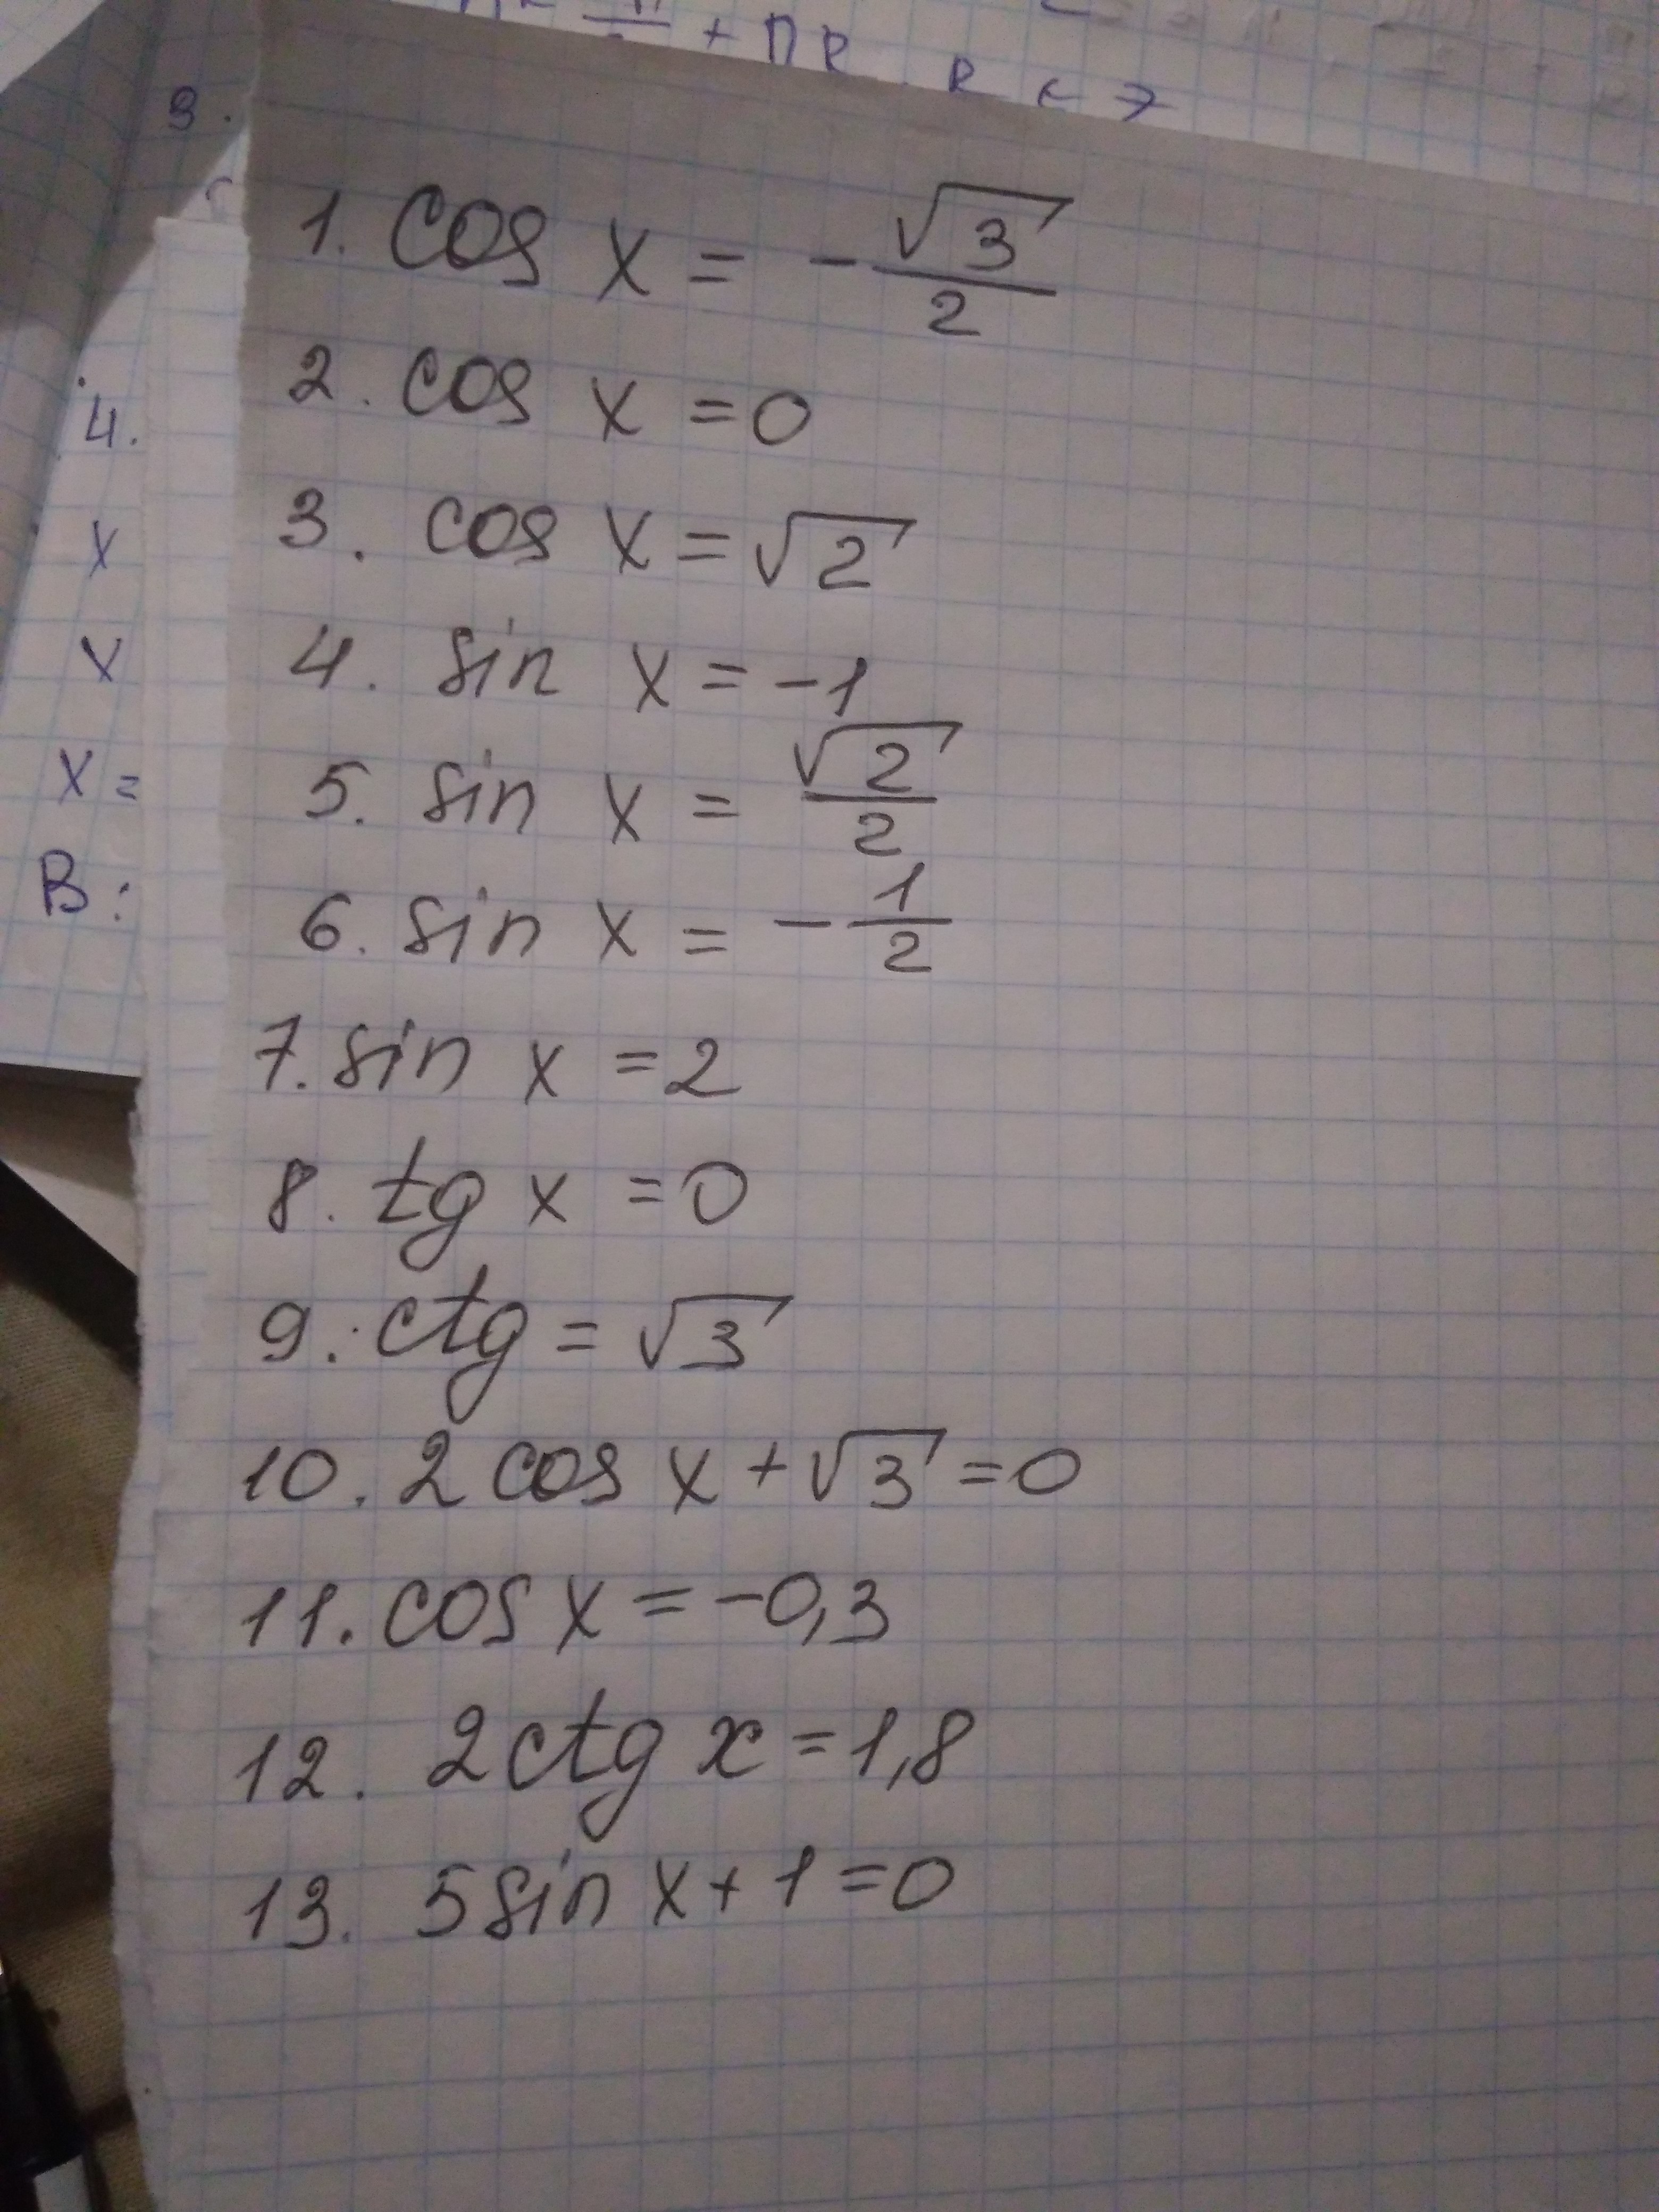 + ПК
3.
1. cos x = -√3/2
2. cos x = 0
3. cos x = √2
4. sin x = -1
5. sin x = √2/2
6. sin x = -1/2
7. sin x = 2
8. tg x = 0
9. ctg = √3
10. 2 cos x + √3 = 0
11. cos x = -0,3
12. 2 ctg x = 1,8
13. 5 sin x + 1 = 0
4.
x
x
x =
В: